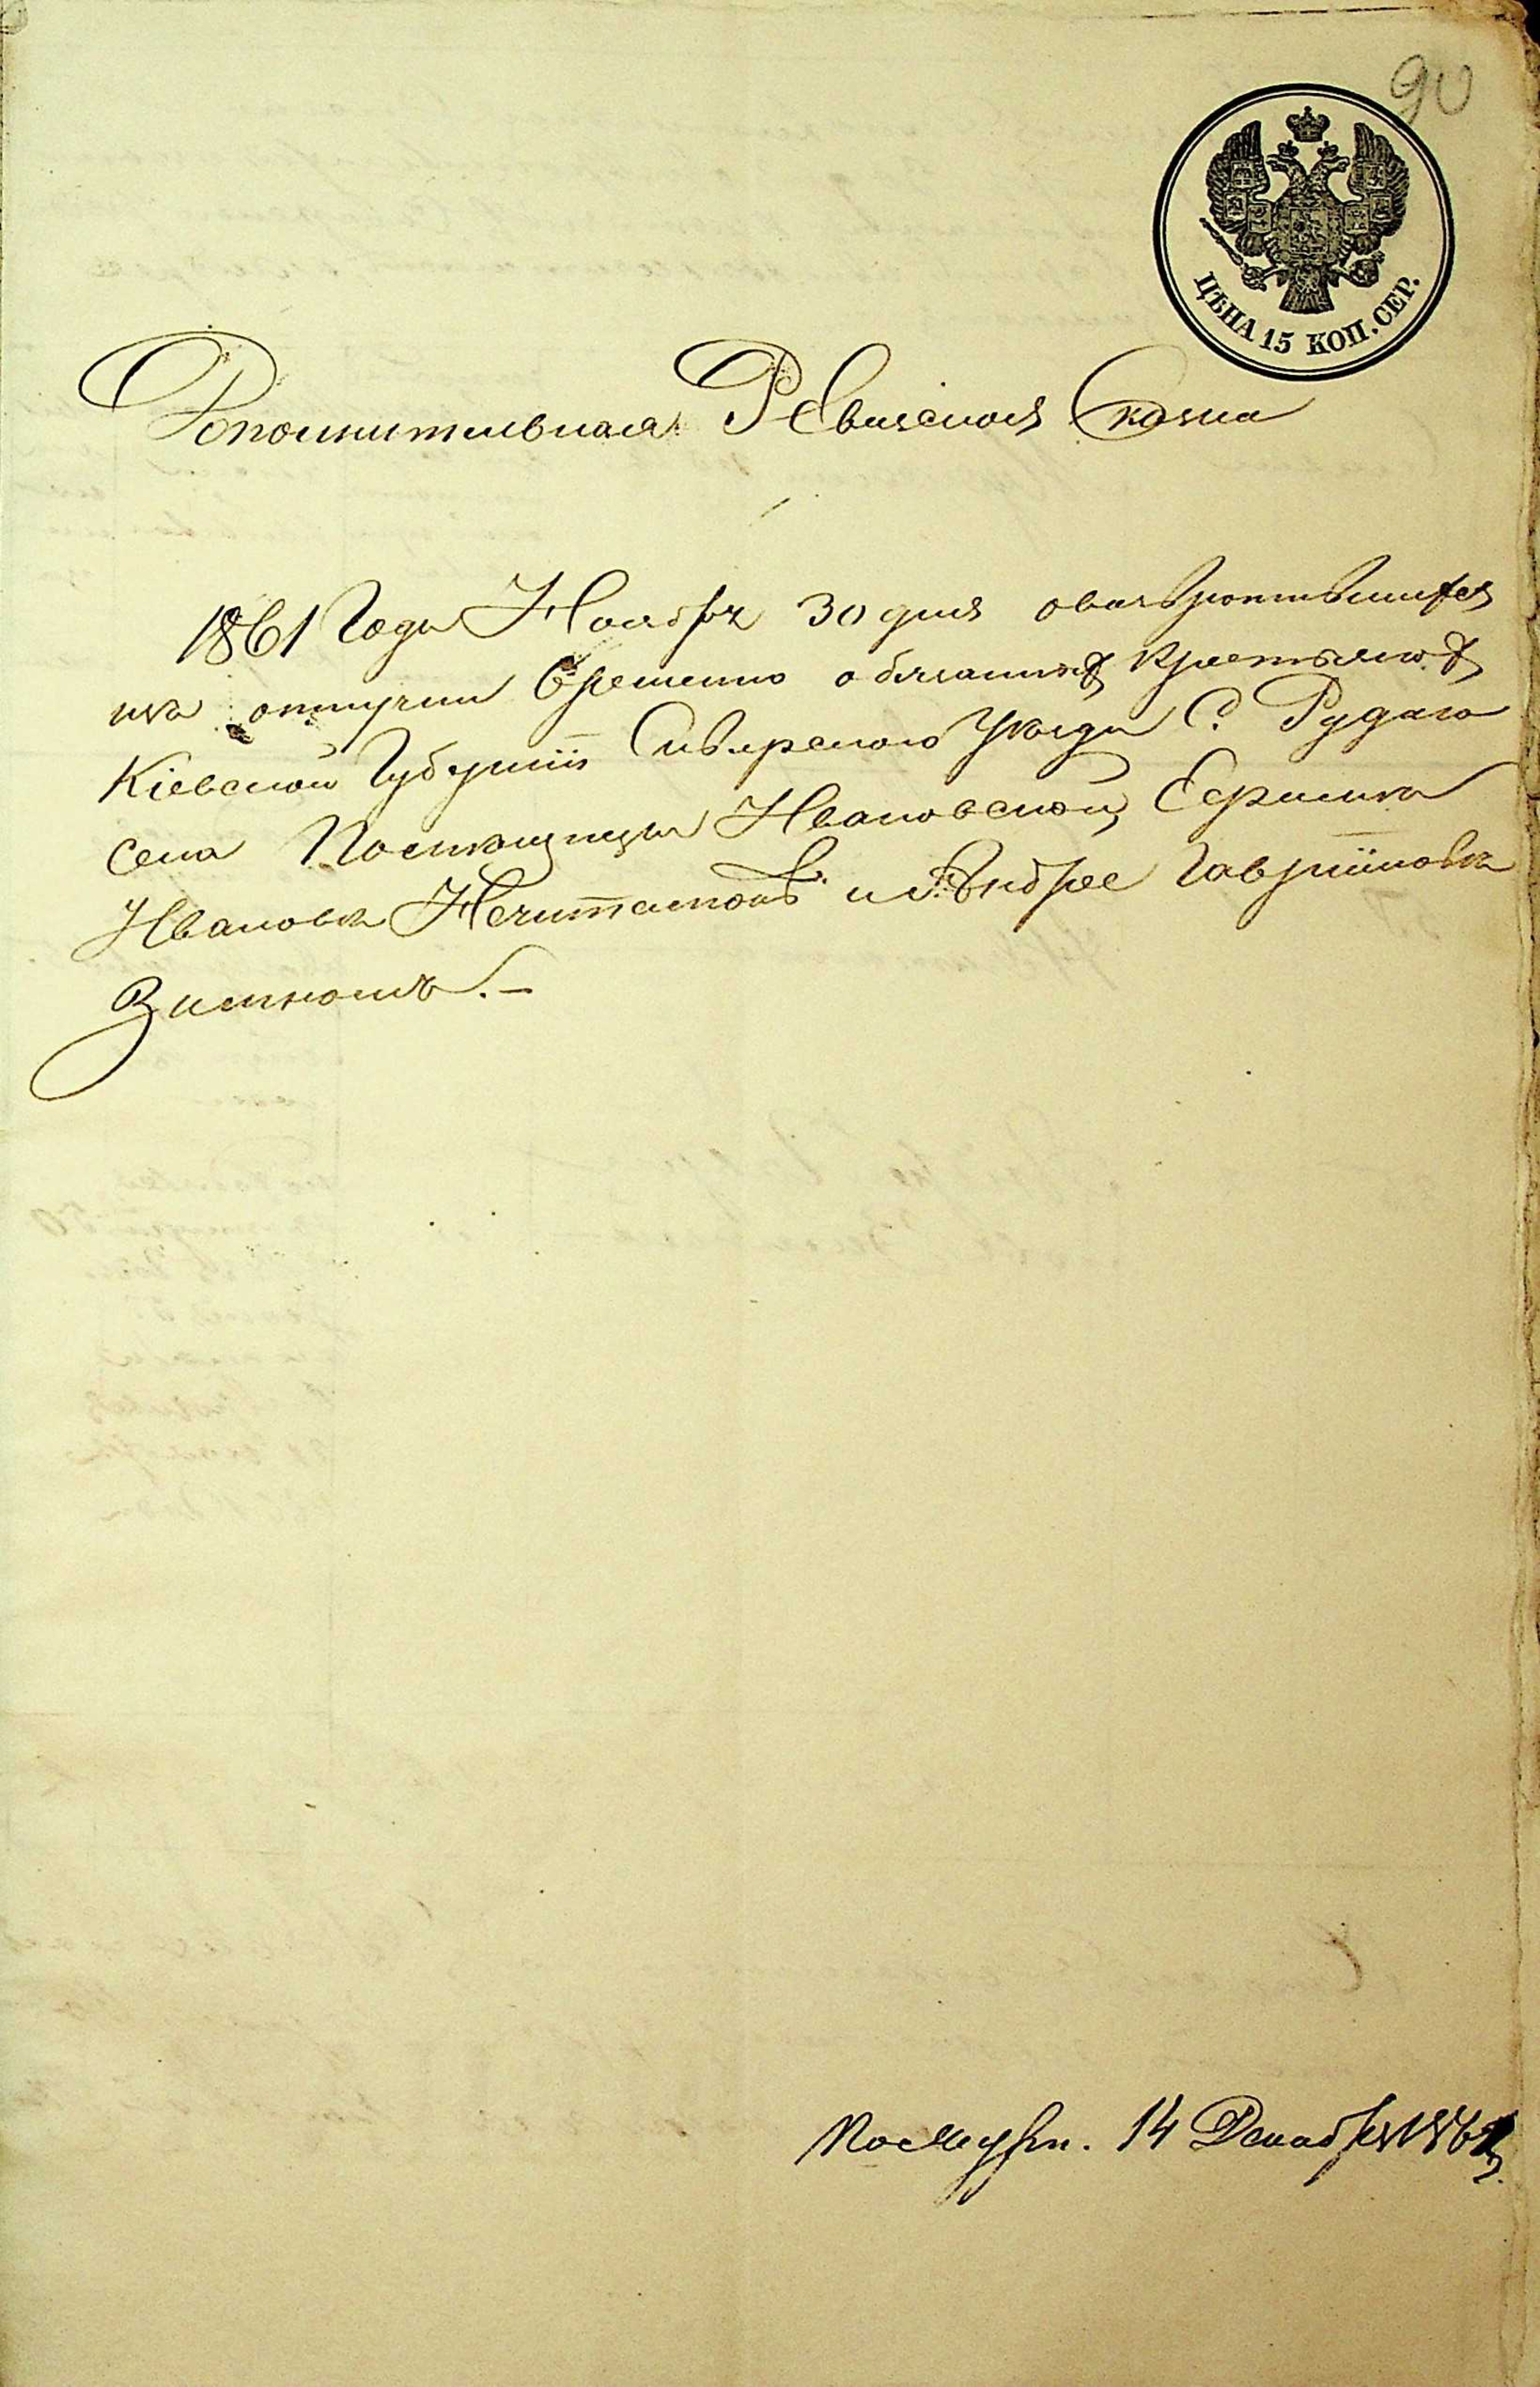 90
ЦѢНА 15 КОП. СЕР.
Дополнительная Ревизская Сказка
1861 Года Ноября 30 дня о возвратившихся
изъ отлучки временно обязанныхъ крестьянахъ
Кіевской Губерніи Сквирскаго Уѣзда С. Рудаго
села Помѣщицы Ивановской, Ефима
Ивановѣ и Андрее Гавриловѣ
Получен. 14 Декабря 1861